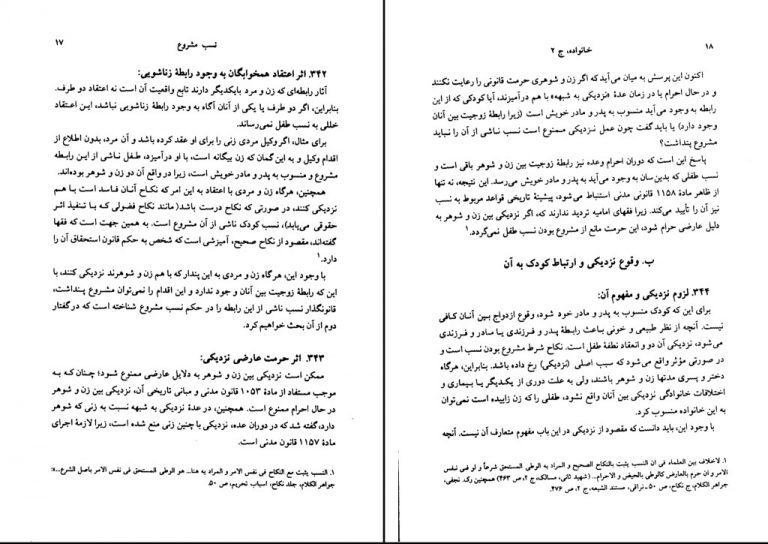 نسب مشروع ۱۷
۳۴۲. اثر اعتقاد همخوابگان به وجود رابطهٔ زناشویی:
آثار رابطه‌ای که زن و مرد بایکدیگر دارند تابع واقعیت آن است نه اعتقاد دو طرف.
بنابراین، اگر دو طرف یا یکی از آنان آگاه به وجود رابطهٔ زناشویی نباشد، این اعتقاد
خللی به نسب طفل نمی‌رساند.
برای مثال، اگر وکیل مردی زنی را برای او عقد کرده باشد و آن مرد، بدون اطلاع از
اقدام وکیل و به این گمان که زن بیگانه است، با او درآمیزد، طفل ناشی از این رابطه
مشروع و منسوب به پدر و مادر خویش است، زیرا در واقع آن دو زن و شوهر بوده‌اند.
همچنین، هرگاه زن و مردی با اعتقاد به این امر که نکاح آنان فاسد است با هم
نزدیکی کنند، در صورتی که نکاح درست باشد (مانند نکاح فضولی که با تنفیذ اثر
حقوقی می‌یابد)، نسب کودک ناشی از آن مشروع است. به همین جهت است که فقها
گفته‌اند، مقصود از نکاح صحیح، آمیزشی است که شخص به حکم قانون استحقاق آن را
دارد.۱
با وجود این، هرگاه زن و مردی به این پندار که با هم زن و شوهرند نزدیکی کنند، با
این که رابطهٔ زوجیت بین آنان وجود ندارد و این اقدام را نمی‌توان مشروع پنداشت،
قانونگذار نسب ناشی از این رابطه را در حکم نسب مشروع شناخته است که در گفتار
دوم از آن بحث خواهیم کرد.
۳۴۳. اثر حرمت عارضی نزدیکی:
ممکن است نزدیکی بین زن و شوهر به دلایل عارضی ممنوع شود؛ چنان که به
موجب مستفاد از مادهٔ ۱۰۵۳ قانون مدنی و مبانی تاریخی آن، نزدیکی بین زن و شوهر
در حال احرام ممنوع است. همچنین، در عدهٔ نزدیکی به شبهه نسبت به زنی که شوهر
دارد، گفته شد که در دوران عده، نزدیکی با چنین زنی منع شده است، زیرا لازمهٔ اجرای
مادهٔ ۱۱۵۷ قانون مدنی است.
۱. النسب یثبت مع النکاح فی نفس الامر و المراد به هنا... هو الوطی المستحق فی نفس الامر باصل الشرع...»:
جواهر الکلام، جلد نکاح، اسباب تحریم، ص ۵۰.
۱۸ خانواده، ج ۲
اکنون این پرسش به میان می‌آید که اگر زن و شوهری حرمت قانونی را رعایت نکنند
و در حال احرام یا در زمان عدهٔ «نزدیکی به شبهه» با هم درآمیزند، آیا کودکی که از این
رابطه به وجود می‌آید منسوب به پدر و مادر خویش است (زیرا رابطهٔ زوجیت بین آنان
وجود دارد) یا باید گفت چون عمل نزدیکی ممنوع است نسب ناشی از آن را نباید
مشروع پنداشت؟
پاسخ این است که دوران احرام وعده نیز رابطهٔ زوجیت بین زن و شوهر باقی است و
نسب طفلی که بدین‌سان به وجود می‌آید به پدر و مادر خویش می‌رسد. این نتیجه، نه تنها
از ظاهر مادهٔ ۱۱۵۸ قانونی مدنی استنباط می‌شود، پیشینهٔ تاریخی قواعد مربوط به نسب
نیز آن را تأیید می‌کند. زیرا فقهای امامیه تردید ندارند که، اگر نزدیکی بین زن و شوهر به
دلیل عارضی حرام شود، این حرمت مانع از مشروع بودن نسب طفل نمی‌گردد.۱
ب. وقوع نزدیکی و ارتباط کودک به آن
۳۴۴. لزوم نزدیکی و مفهوم آن:
برای این که کودک منسوب به پدر و مادر خود شود، وقوع ازدواج بین آنان کافی
نیست. آنچه از نظر طبیعی و خونی باعث رابطهٔ پدر و فرزندی یا مادر و فرزندی
می‌شود، نزدیکی آن دو و انعقاد نطفهٔ طفل است. نکاح شرط مشروع بودن نسب است و
در صورتی مؤثر واقع می‌شود که سبب اصلی (نزدیکی) رخ داده باشد. بنابراین، هرگاه
دختر و پسری مدتها زن و شوهر باشند، ولی به علت دوری از یکدیگر یا بیماری و
اختلافات خانوادگی نزدیکی بین آنان واقع نشود، طفلی را که زن زاییده است نمی‌توان
به این خانواده منسوب کرد.
با وجود این، باید دانست که مقصود از نزدیکی در این باب مفهوم متعارف آن نیست. آنچه
۱. لاخلاف بین العلماء فی ان النسب یثبت بالنکاح الصحیح و المراد به الوطی المستحق شرعاً و لو فی نفس
الامر و ان حرم بالعارض کالوطی بالحیض و الاحرام... (شهید ثانی، مسالک، ج ۲، ص ۴۶۳) همچنین رک. نجفی،
جواهر الکلام، ج نکاح، ص ۵۰ ـ نراقی، مستند الشیعه، ج ۲، ص ۴۷۶.